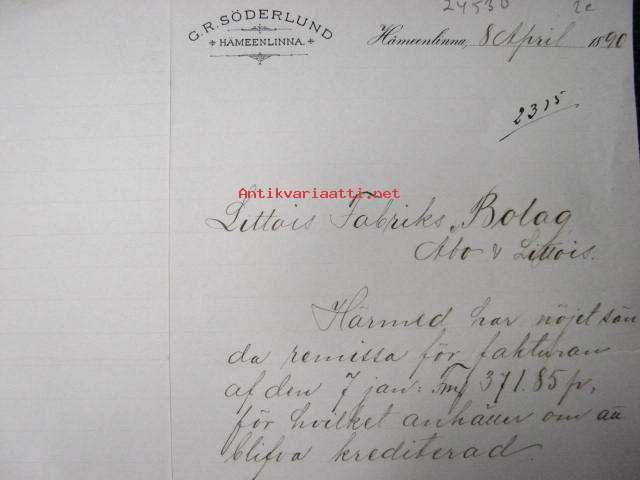 24530 2e
G.R. SÖDERLUND
HÄMEENLINNA.
Hämeenlinna, 8 April 1890
2315
Antikvariaatti.net
Littois Fabriks Bolag
Åbo & Littois.
Härmed har nöjet sän
da remissa för fakturan
af den 7 jan: Fmf 371.85 p,
för hvilket anhåller om att
blifva krediterad.